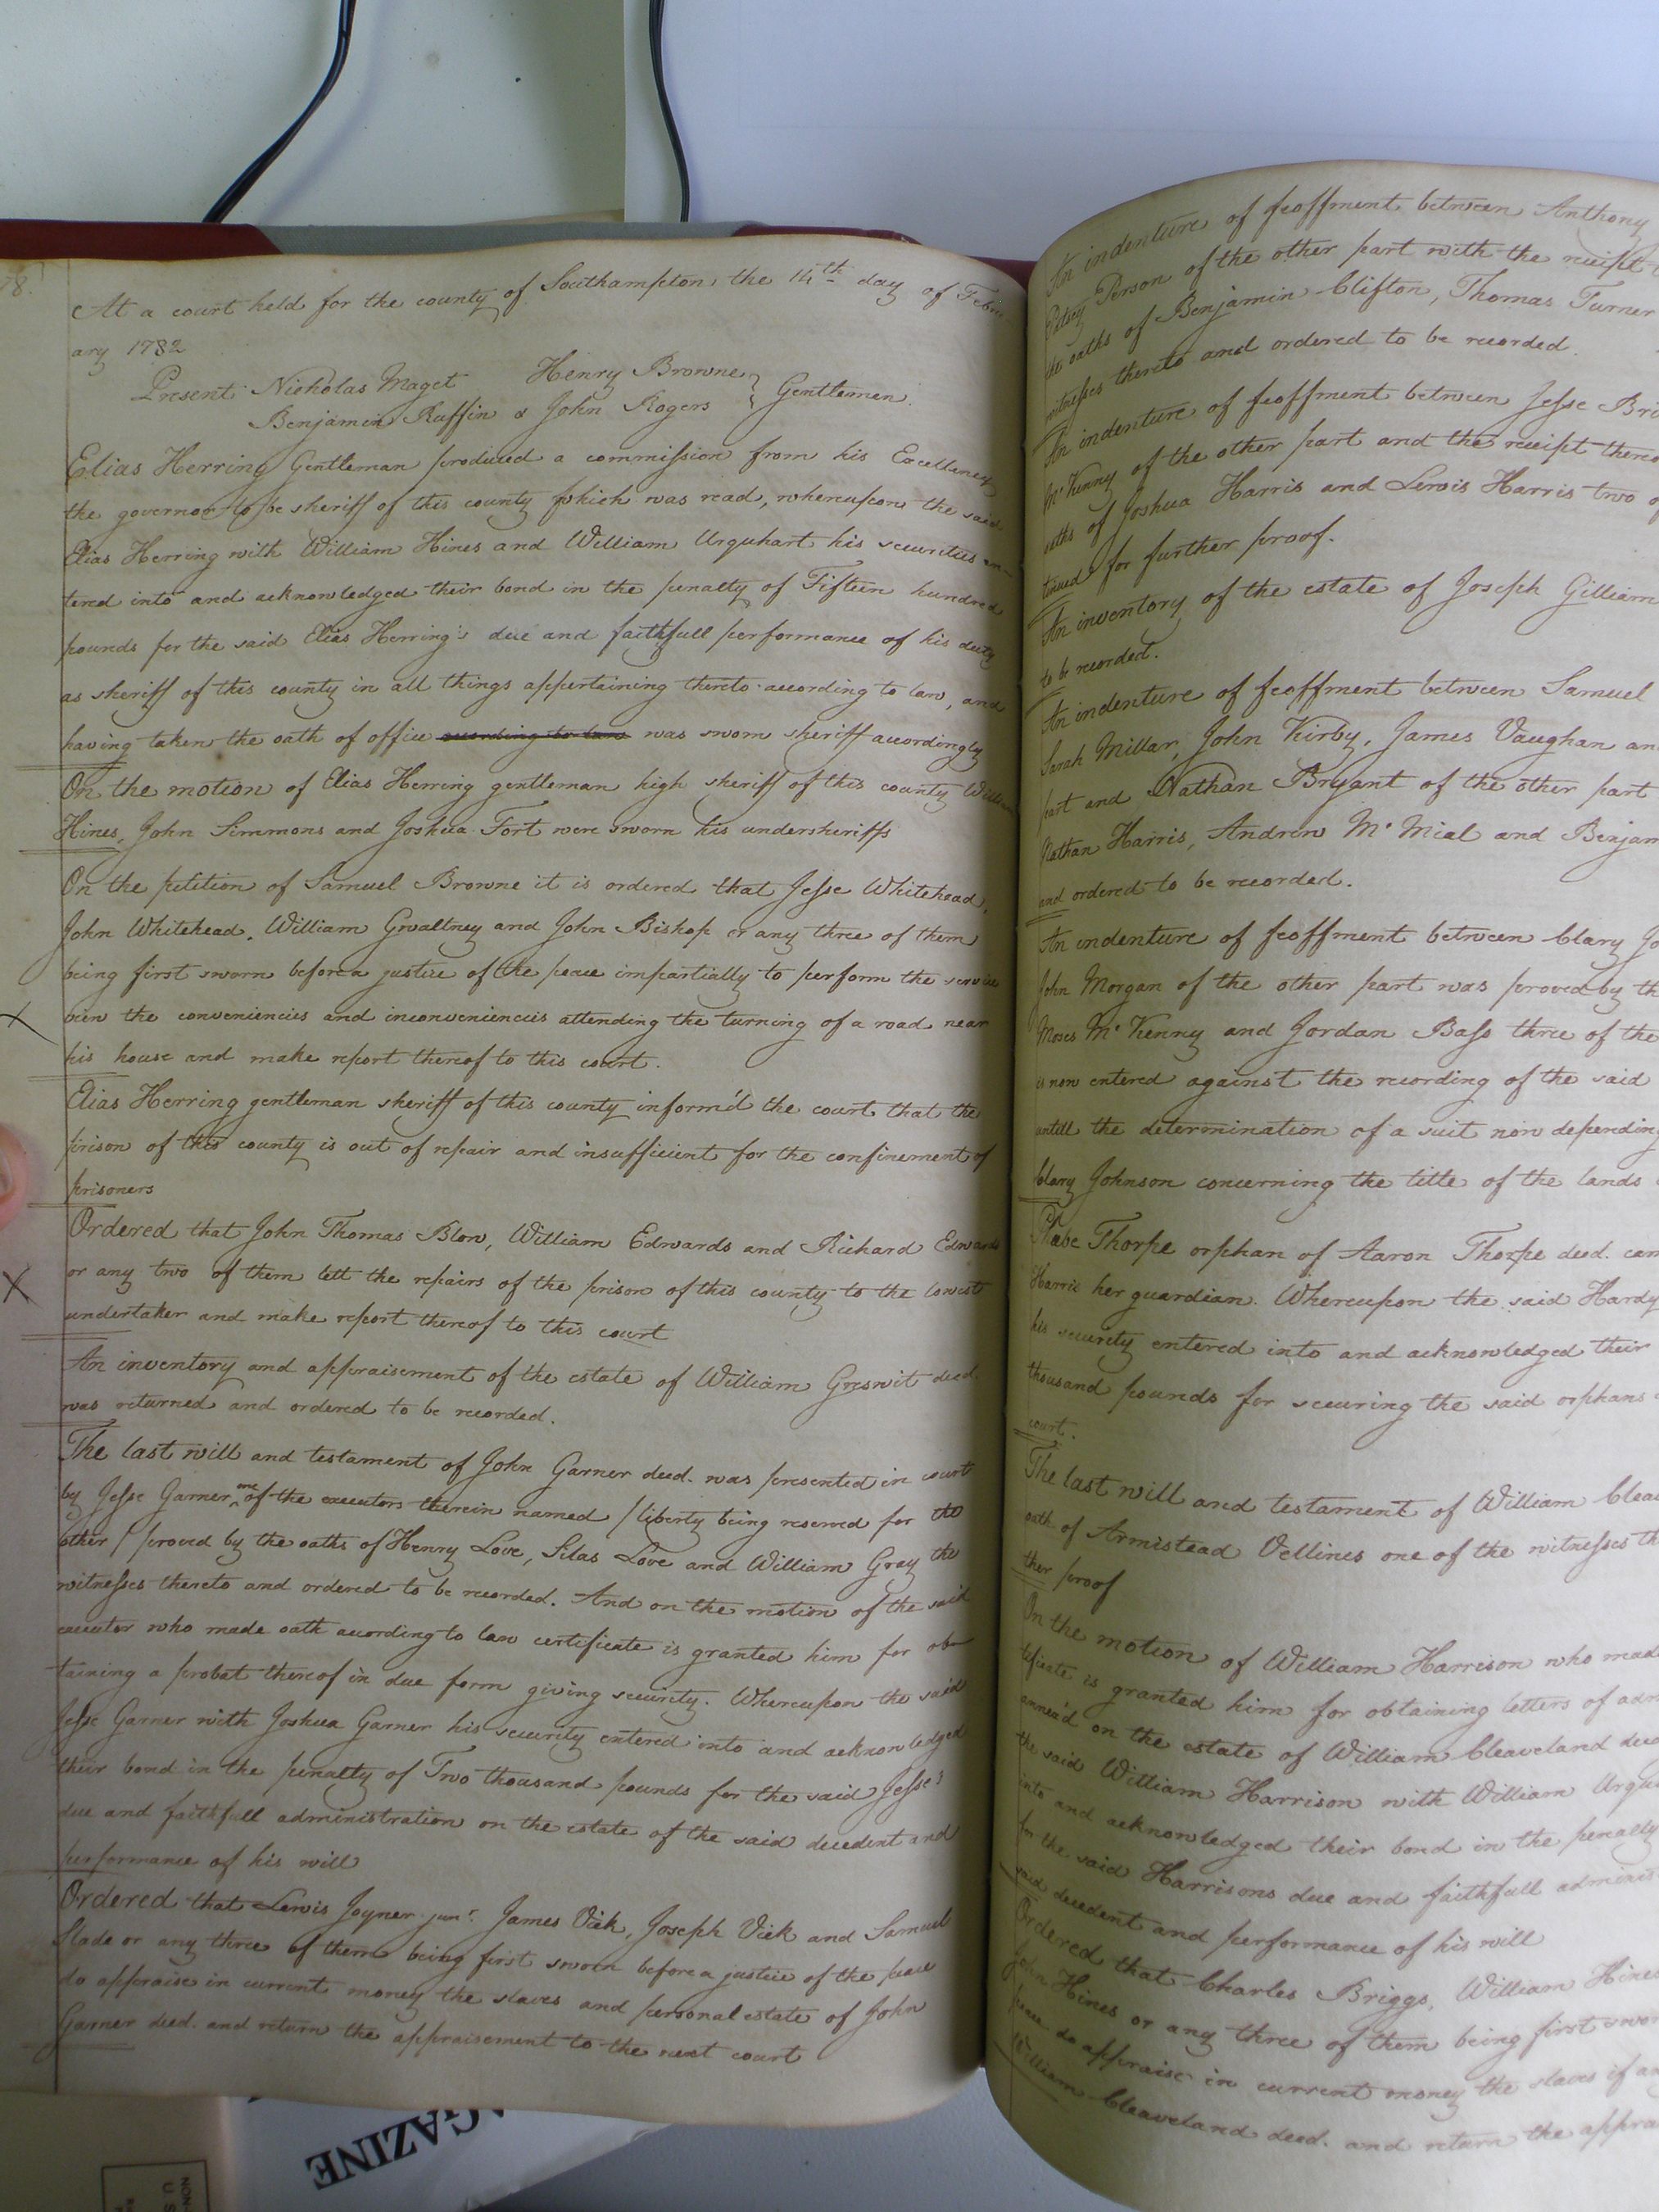 78.
At a court held for the county of Southampton the 14th day of Febru
ary 1782
Present Nicholas Maget Henry Browne } Gentlemen.
Benjamin Ruffin & John Rogers
Elias Herring Gentleman produced a commission from his Excellency
the governor to be sheriff of this county which was read, whereupon the said
Elias Herring with William Hines and William Urquhart his securities en-
tered into and acknowledged their bond in the penalty of Fifteen hundred
pounds for the said Elias Herring's due and faithfull performance of his duty
as sheriff of this county in all things appertaining thereto according to law, and
having taken the oath of office according to law was sworn sheriff accordingly
On the motion of Elias Herring gentleman high sheriff of this county William
Hines, John Simmons and Joshua Fort were sworn his undersheriffs
On the petition of Samuel Browne it is ordered that Jesse Whitehead,
John Whitehead, William Gwaltney and John Bishop or any three of them
being first sworn before a justice of the peace impartially to perform the service
view the conveniencies and inconveniencies attending the turning of a road near
his house and make report thereof to this court.
Elias Herring gentleman sheriff of this county inform'd the court that the
prison of this county is out of repair and insufficient for the confinement of
prisoners
Ordered that John Thomas Blow, William Edwards and Richard Edwards
or any two of them lett the repairs of the prison of this county to the lowest
undertaker and make report thereof to this court
An inventory and appraisement of the estate of William Greswit deed.
was returned and ordered to be recorded.
The last will and testament of John Garner deed. was presented in court
by Jesse Garner one of the executors therein named / liberty being reserved for the
other / proved by the oaths of Henry Love, Silas Love and William Gray the
witnesses thereto and ordered to be recorded. And on the motion of the said
executor who made oath according to law certificate is granted him for ob-
taining a probat thereof in due form giving security. Whereupon the said
Jesse Garner with Joshua Garner his security entered into and acknowledged
their bond in the penalty of Two thousand pounds for the said Jesse's
due and faithfull administration on the estate of the said decedent and
performance of his will
Ordered that Lewis Joyner junr. James Vick, Joseph Vick and Samuel
Slade or any three of them being first sworn before a justice of the peace
do appraise in current money the slaves and personal estate of John
Garner deed. and return the appraisement to the next court
An indenture of feoffment between Anthony
Patsey Person of the other part with the receipt
the oaths of Benjamin Clifton, Thomas Turner
witnesses thereto and ordered to be recorded.
An indenture of feoffment between Jesse Bri
McKenny of the other part and the receipt thereo
oaths of Joshua Harris and Lewis Harris two of
tinued for further proof.
An inventory of the estate of Joseph Gilliam
to be recorded.
An indenture of feoffment between Samuel
Sarah Millar, John Kirby, James Vaughan an
part and Nathan Bryant of the other part
Nathan Harris, Andrew McMial and Benjam
and ordered to be recorded.
An indenture of feoffment between Clary Jo
John Morgan of the other part was proved by th
Moses McKenny and Jordan Bass three of the
is now entered against the recording of the said
untill the determination of a suit now depending
Clary Johnson concerning the title of the lands
Phebe Thorpe orphan of Aaron Thorpe deed. cam
Harris her guardian. Whereupon the said Hardy
his security entered into and acknowledged their
thousand pounds for securing the said orphans
court.
The last will and testament of William Clea
oath of Armistead Vellines one of the witnesses th
ther proof
On the motion of William Harrison who made
tificate is granted him for obtaining letters of adm
annex'd on the estate of William Cleaveland deed
the said William Harrison with William Urqu
into and acknowledged their bond in the penalty
for the said Harrisons due and faithfull adminis
said decedent and performance of his will
Ordered that Charles Briggs, William Hines
John Hines or any three of them being first swor
peace do appraise in current money the slaves if an
William Cleaveland deed. and return the appra
AGAZINE
NON-
U.S